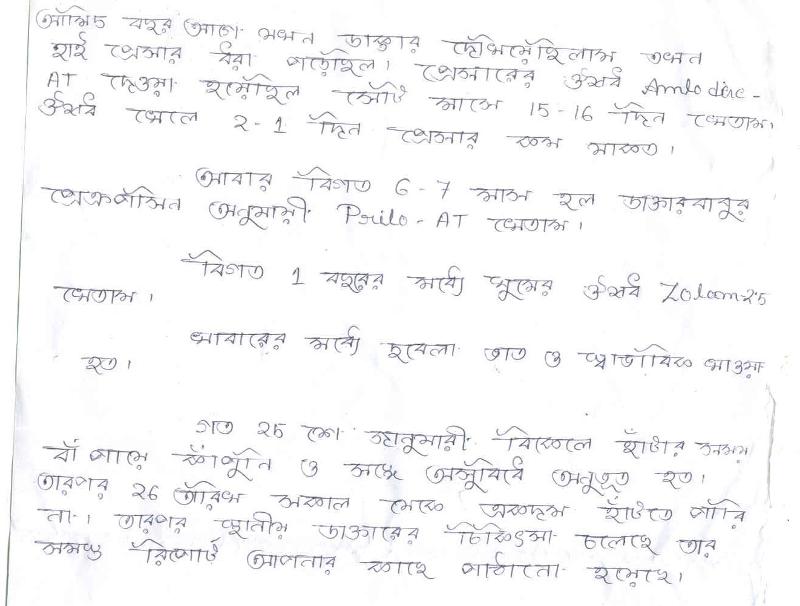 আমি 5 বছর আগে যখন ডাক্তার দেখিয়েছিলাম তখন
হাই প্রেসার ধরা পড়েছিল। প্রেসারের ঔষধ Amlodine-
AT দেওয়া হয়েছিল সেটি মাসে 15-16 দিন খেতাম।
ঔষধ খেলে 2-1 দিন প্রেসার কম থাকত।
আবার বিগত 6-7 মাস হল ডাক্তারবাবুর
প্রেসক্রিপসন অনুযায়ী Prilo-AT খেতাম।
বিগত 1 বছরের মধ্যে ঘুমের ঔষধ Zolam 25
খেতাম।
খাবারের মধ্যে দুবেলা ভাত ও স্বাভাবিক খাওয়া
হত।
গত 25 শে জানুয়ারী বিকেলে হাঁটার সময়
বাঁ পায়ে কাঁপুনি ও সঙ্গে অসুবিধে অনুভূত হত।
তারপর 26 তারিখ সকাল থেকে একদম হাঁটতে পারি
না। তারপর স্থানীয় ডাক্তারের চিকিৎসা চলেছে তার
সমস্ত রিপোর্ট আপনার কাছে পাঠানো হয়েছে।